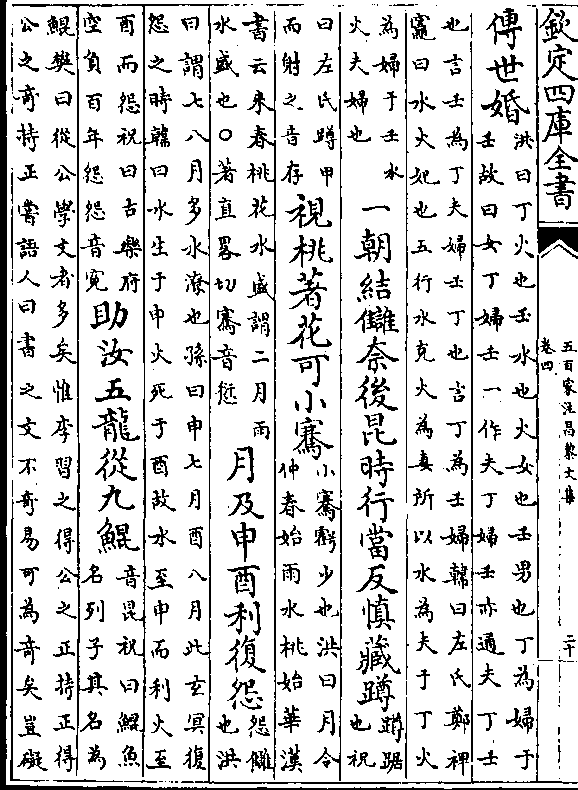 欽定四庫全書
五百家注昌黎文集
卷四
二十
傳世婚
洪曰丁火也壬水也火女也壬男也丁為婦于
壬故曰女丁婦壬一作夫丁婦壬亦通夫丁壬
也言壬為丁夫婦壬丁也言丁為壬婦韓曰左氏鄭裨
竈曰水火妃也五行水克火為妻所以水為夫于丁火
為婦于壬水
火夫婦也
一朝結讎奈後昆時行當反慎藏蹲
蹲踞
也祝
曰左氏蹲甲
而射之音存
視桃著花可小騫
小騫虧少也洪曰月令
仲春始雨水桃始華漢
書云來春桃花水盛謂二月雨
水盛也○著直畧切騫音愆
月及申酉利復怨
怨讎
也洪
曰謂七八月多水潦也孫曰申七月酉八月此玄冥復
怨之時韓曰水生于申火死于酉故水至申而利火至
酉而怨祝曰古樂府
空負百年怨怨音寃
助汝五龍從九鯤
音昆祝曰鯤魚
名列子其名為
鯤樊曰從公學文者多矣惟李習之得公之正持正得
公之奇持正嘗語人曰書之文不奇易可為奇矣豈礙